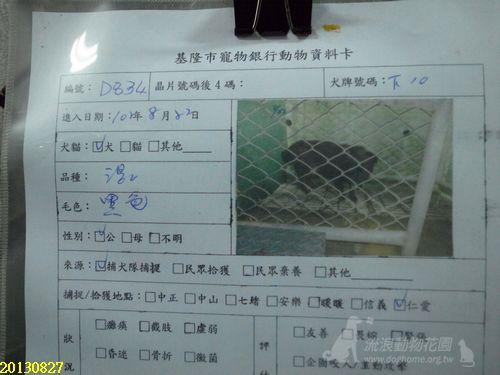 基隆市寵物銀行動物資料卡
編號: DB34 晶片號碼後4碼: 犬牌號碼: 下10
進入日期: 102年8月22日
犬貓: ☑犬 □貓 □其他
品種: 混
毛色: 黑色
性別: ☑公 □母 □不明
來源: ☑捕犬隊捕捉 □民眾拾獲 □民眾棄養 □其他
捕捉/拾獲地點: □中正 □中山 □七堵 □安樂 □暖暖 □信義 ☑仁愛
□癱瘓 □截肢 □虛弱 □友善 □畏縮 □緊張
狀況 □昏迷 □骨折 □黴菌 評估 □企圖咬人/主動攻擊
流浪動物花園
www.doghome.org.tw
20130827